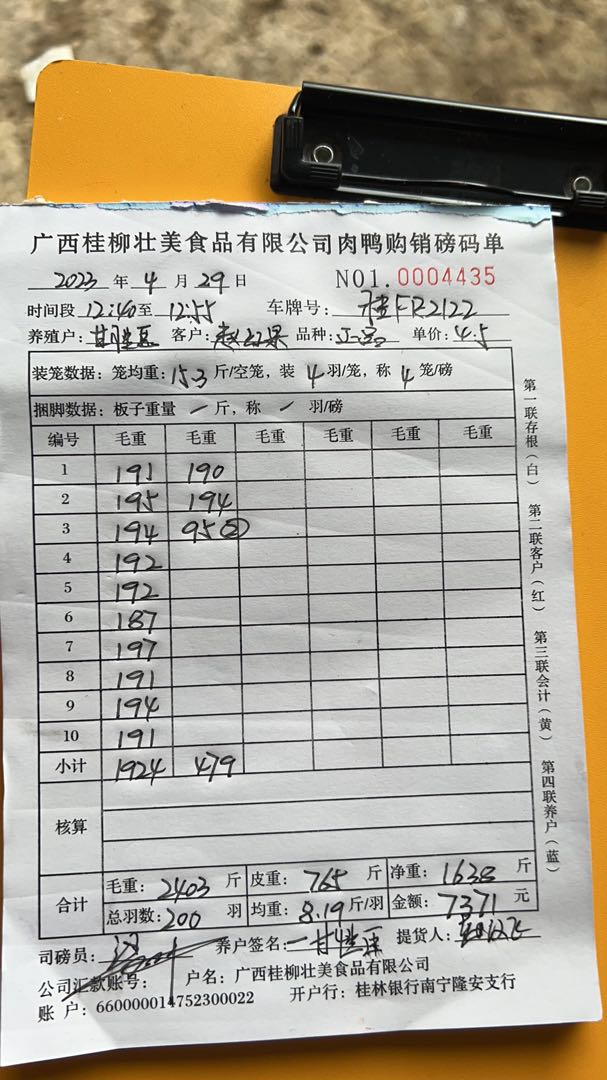 广西桂柳壮美食品有限公司肉鸭购销磅码单
2023 年 4 月 29 日 NO1.0004435
时间段 12:40 至 12:55 车牌号: 桂FR2122
养殖户: 客户: 品种: 单价: 4.5
装笼数据: 笼均重: 15.3 斤/空笼, 装 4 羽/笼, 称 4 笼/磅
捆脚数据: 板子重量 一 斤, 称 一 羽/磅
编号 毛重 毛重 毛重 毛重 毛重 毛重
1 191 190
2 195 194
3 194 95②
4 192
5 192
6 187
7 197
8 191
9 194
10 191
小计 1924 479
核算
合计 毛重: 2403 斤 皮重: 765 斤 净重: 1638 斤
总羽数: 200 羽 均重: 8.19 斤/羽 金额: 7371 元
司磅员: 养户签名: 提货人:
公司汇款账号: 户名: 广西桂柳壮美食品有限公司
账 户: 660000014752300022 开户行: 桂林银行南宁隆安支行
第一联存根(白) 第二联客户(红) 第三联会计(黄) 第四联养户(蓝)